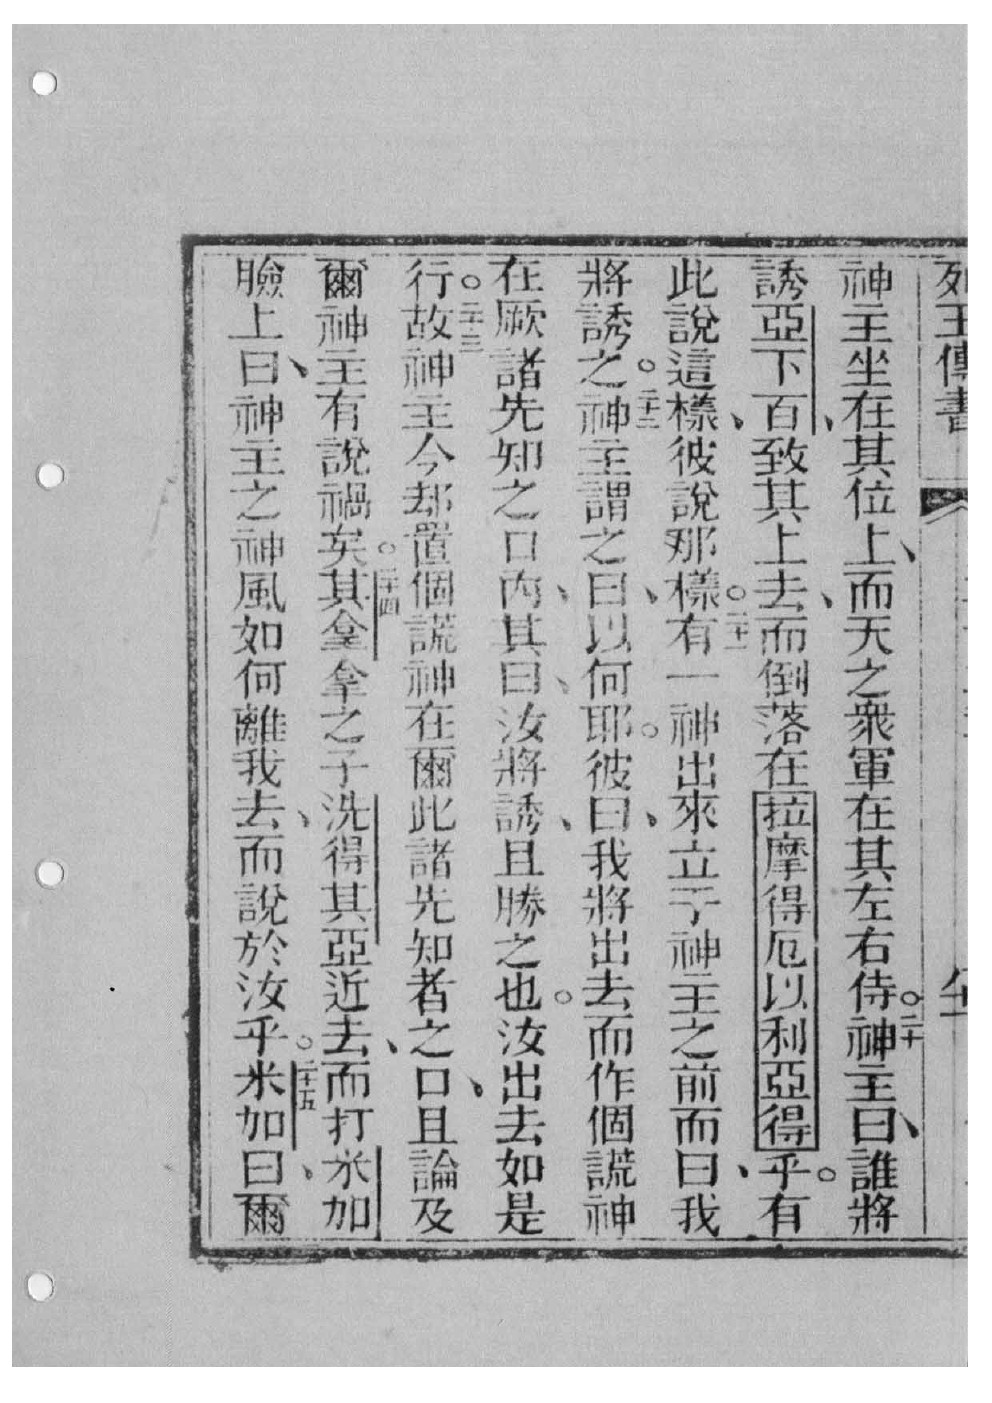 列王傳書
神主坐在其位上、而天之衆軍在其左右侍。二十神主曰、誰將
誘亞下百、致其上去、而倒落在拉摩得厄以利亞得乎。有
此說這樣、彼說那樣。二十一有一神出來立于神主之前而曰、我
將誘之。二十二神主謂之曰、以何耶。彼曰、我將出去而作個謊神
在厥諸先知之口內、其曰、汝將誘、且勝之也。汝出去如是
行。二十三故神主今却置個謊神在爾此諸先知者之口、且論及
爾神主有說禍矣。二十四其拿拿之子洗得其亞近去、而打米加
臉上曰、神主之神風如何離我去、而說於汝乎。二十五米加曰、爾